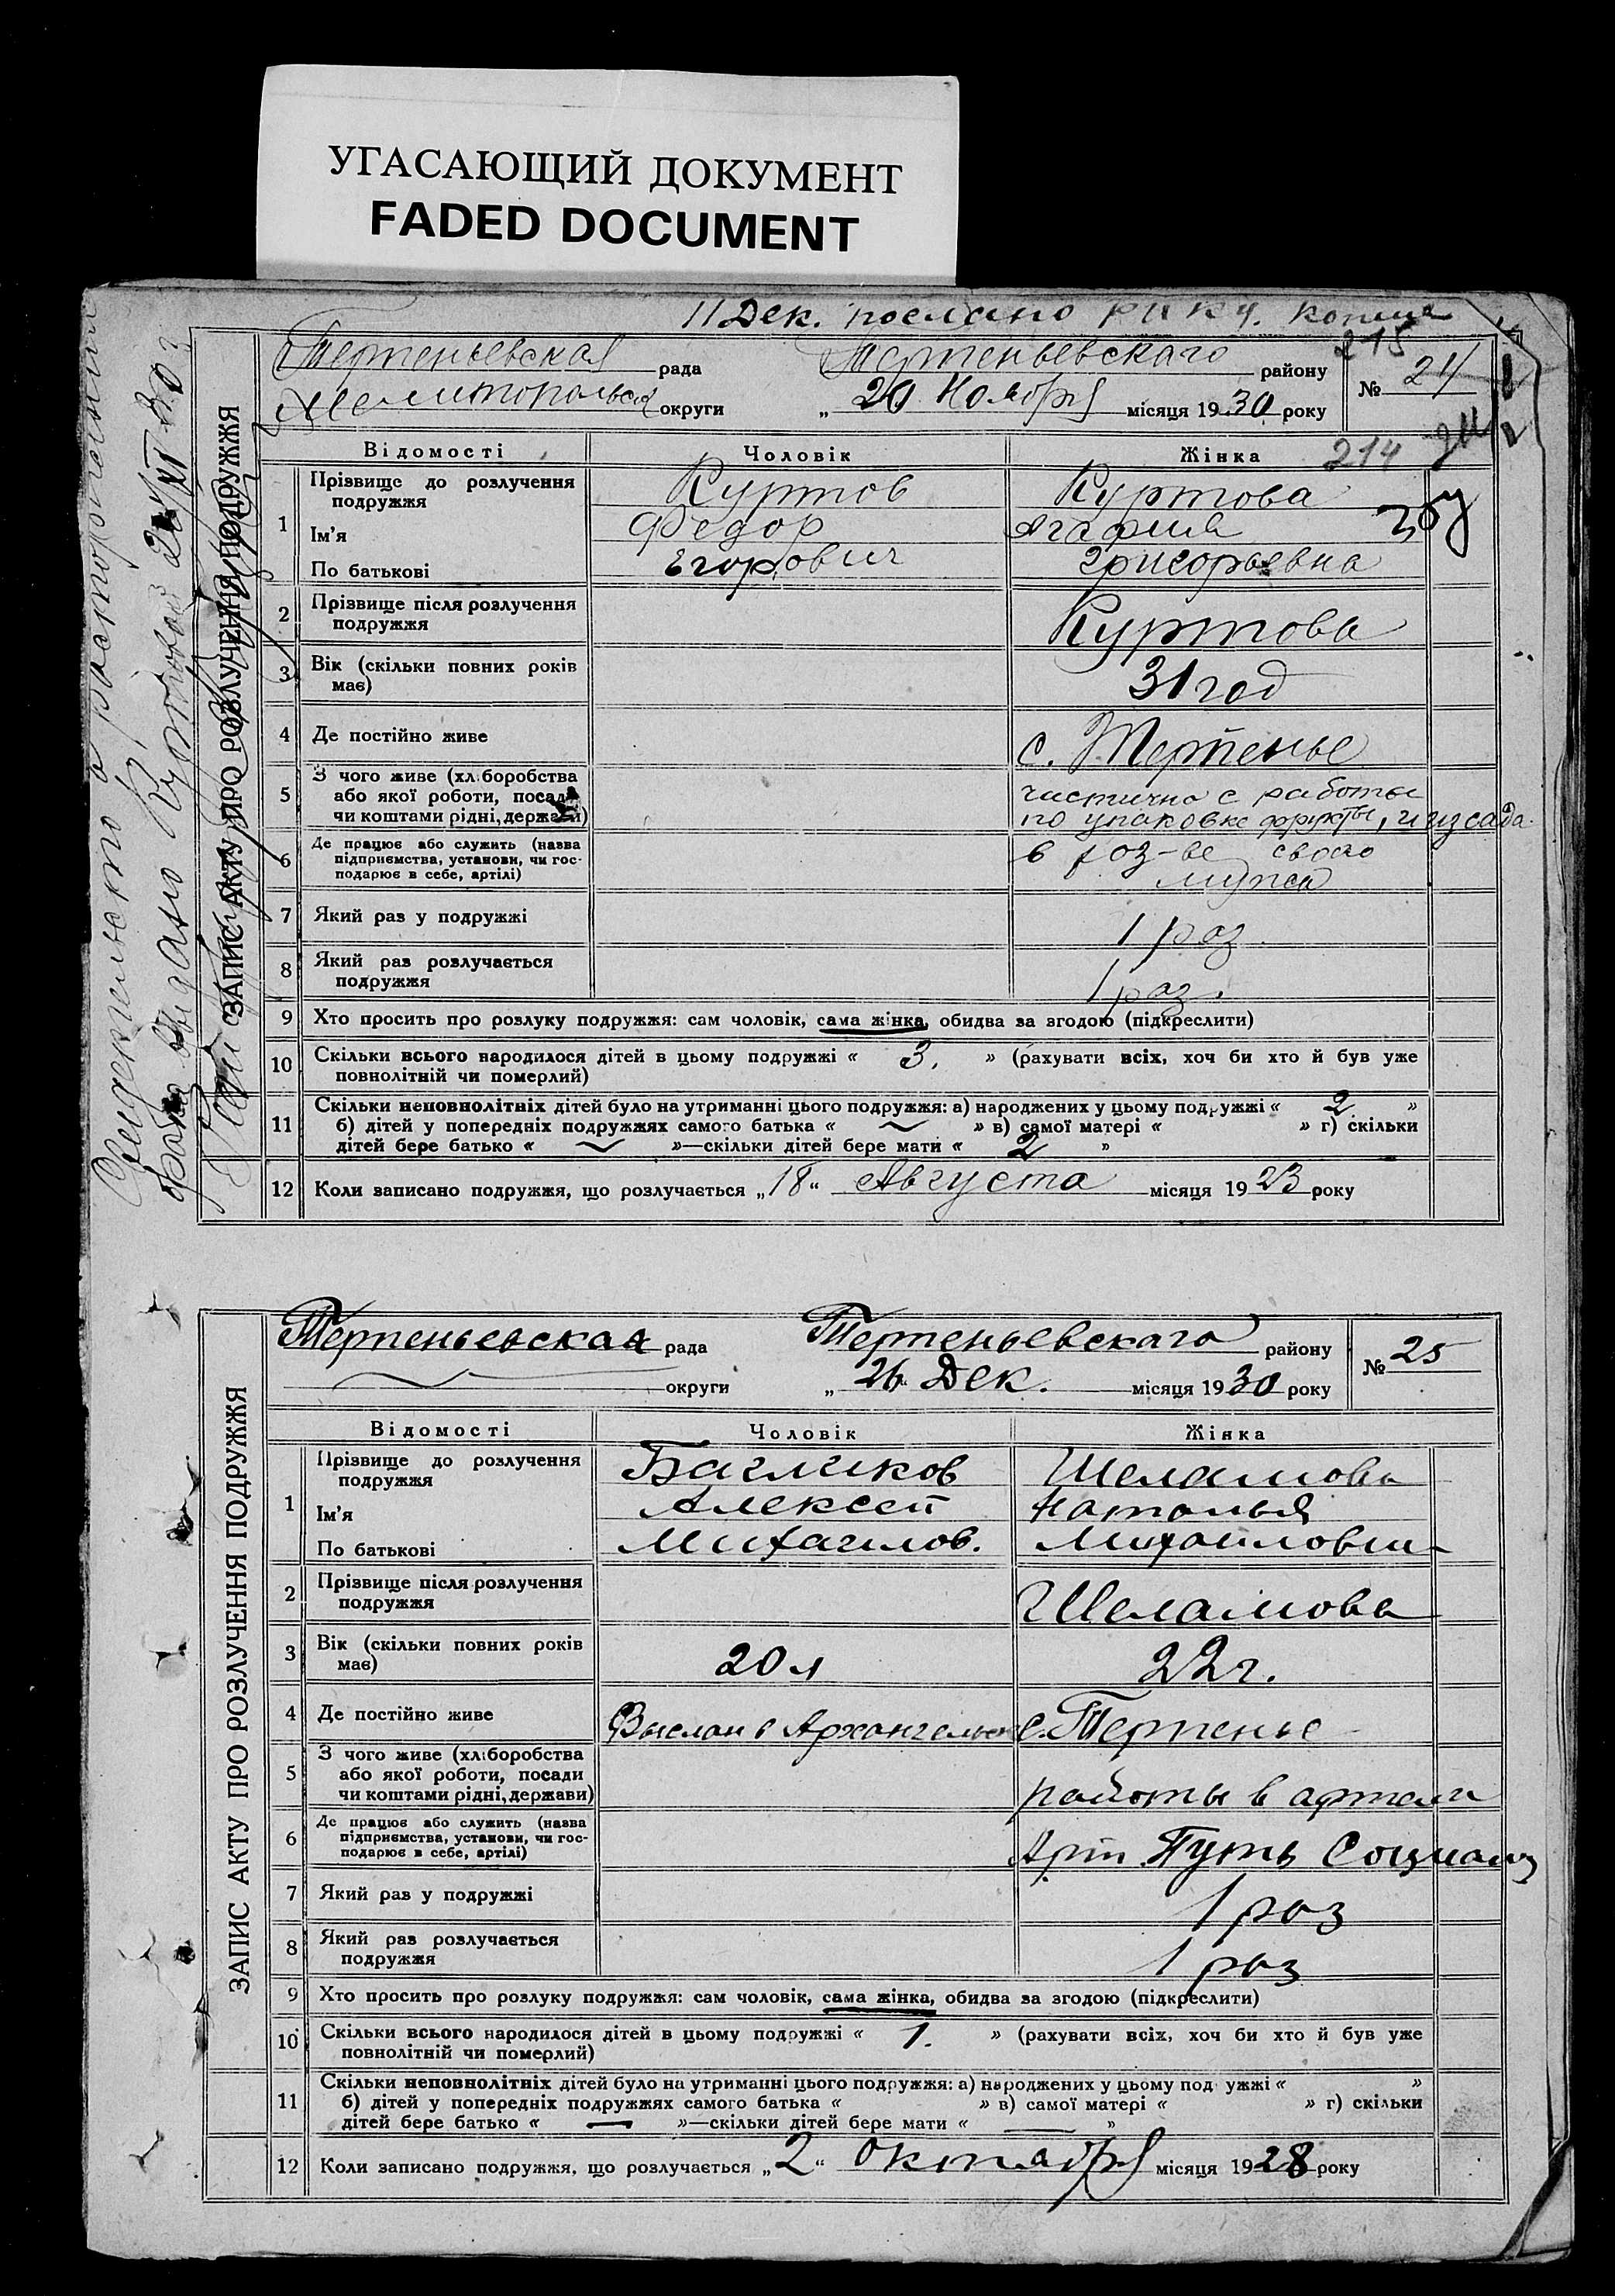 УГАСАЮЩИЙ ДОКУМЕНТ
FADED DOCUMENT
11 Дек. послано копия
215
Терпеньевская рада Терпеньевскаго району
№ 24
Мелитопольск округи „ 20 Ноября місяця 1930 року
ЗАПИС АКТУ ПРО РОЗЛУЧЕННЯ ПОДРУЖЖЯ
Свидетельство о расторжении
брака выдано Куртовой
Відомості Чоловік Жінка 214
1 Прізвище до розлучення подружжя Куртов Куртова
Ім'я Федор Агафия
По батькові Егорович Григорьевна
2 Прізвище після розлучення
подружжя Куртова
3 Вік (скільки повних років
має) 31 год
4 Де постійно живе с. Терпенье
5 З чого живе (хліборобства частично с работы
або якої роботи, посади по упаковке фрукты, и из сада
чи коштами рідні, держави)
6 Де працює або служить (назва в хоз-ве своего
підприємства, установи, чи гос- мужа
подарює в себе, артілі)
7 Який раз у подружжі 1 раз
8 Який раз розлучається
подружжя 1 раз.
9 Хто просить про розлуку подружжя: сам чоловік, сама жінка, обидва за згодою (підкреслити)
10 Скільки всього народилося дітей в цьому подружжі « 3. » (рахувати всіх, хоч би хто й був уже
повнолітній чи померлий)
11 Скільки неповнолітніх дітей було на утриманні цього подружжя: а) народжених у цьому подружжі « 2 »
б) дітей у попередніх подружжях самого батька « » в) самої матері « » г) скільки
дітей бере батько « »—скільки дітей бере мати « 2 »
12 Коли записано подружжя, що розлучається „18“ Августа місяця 1923 року
Терпеньевская рада Терпеньевскаго району
№ 25
округи „ 26 Дек. місяця 1930 року
ЗАПИС АКТУ ПРО РОЗЛУЧЕННЯ ПОДРУЖЖЯ
Відомості Чоловік Жінка
1 Прізвище до розлучення
подружжя Багликов Шеламова
Ім'я Алексей Наталья
По батькові Михаилов. Михаиловна
2 Прізвище після розлучення
подружжя Шеламова
3 Вік (скільки повних років
має) 20 л 22 г.
4 Де постійно живе Выслан в Архангельск с. Терпенье
5 З чого живе (хліборобства
або якої роботи, посади
чи коштами рідні, держави) работы в артели
6 Де працює або служить (назва
підприємства, установи, чи гос- Арт. Путь Социализ
подарює в себе, артілі)
7 Який раз у подружжі 1 раз
8 Який раз розлучається
подружжя 1 раз
9 Хто просить про розлуку подружжя: сам чоловік, сама жінка, обидва за згодою (підкреслити)
10 Скільки всього народилося дітей в цьому подружжі « 1. » (рахувати всіх, хоч би хто й був уже
повнолітній чи померлий)
11 Скільки неповнолітніх дітей було на утриманні цього подружжя: а) народжених у цьому подружжі « »
б) дітей у попередніх подружжях самого батька « » в) самої матері « » г) скільки
дітей бере батько « — »—скільки дітей бере мати « — »
12 Коли записано подружжя, що розлучається „2“ октября місяця 1928 року